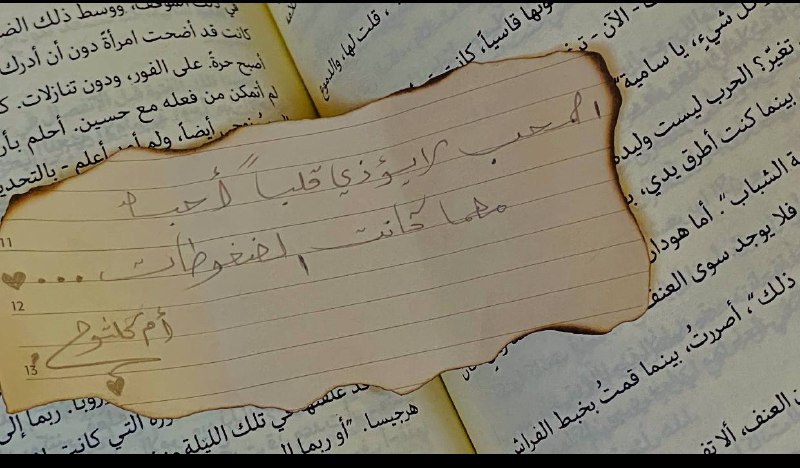 في ذلك الموقف، ووسط ذلك
كانت قد أضحت امرأةً دون أن أدرك
أصبح حرة. على الفور، ودون تنازلات.
لم أتمكن من فعله مع حسين. أحلم بأن
أيضاً، ولم أعلم - بالتحديد
قلت لها، والدموع
قاسياً، كانت
- الآن -
شيءٍ، يا سامية
تغيّر؟ الحرب ليست وليدة
بينما كنت أطرق يدي،
ة الشباب". أما هودا
فلا يوجد سوى العنف
ذلك"، أصررتُ، بينما قمتُ بخبط الفراش
العنف، ألا
المحب لا يؤذي قلباً أحبه
مهما كانت الضغوطات ...
أم كلثوم
11
12
13
في تلك الليلة
التي كانت
هرجيسا. "أو ربما
ربما إلى